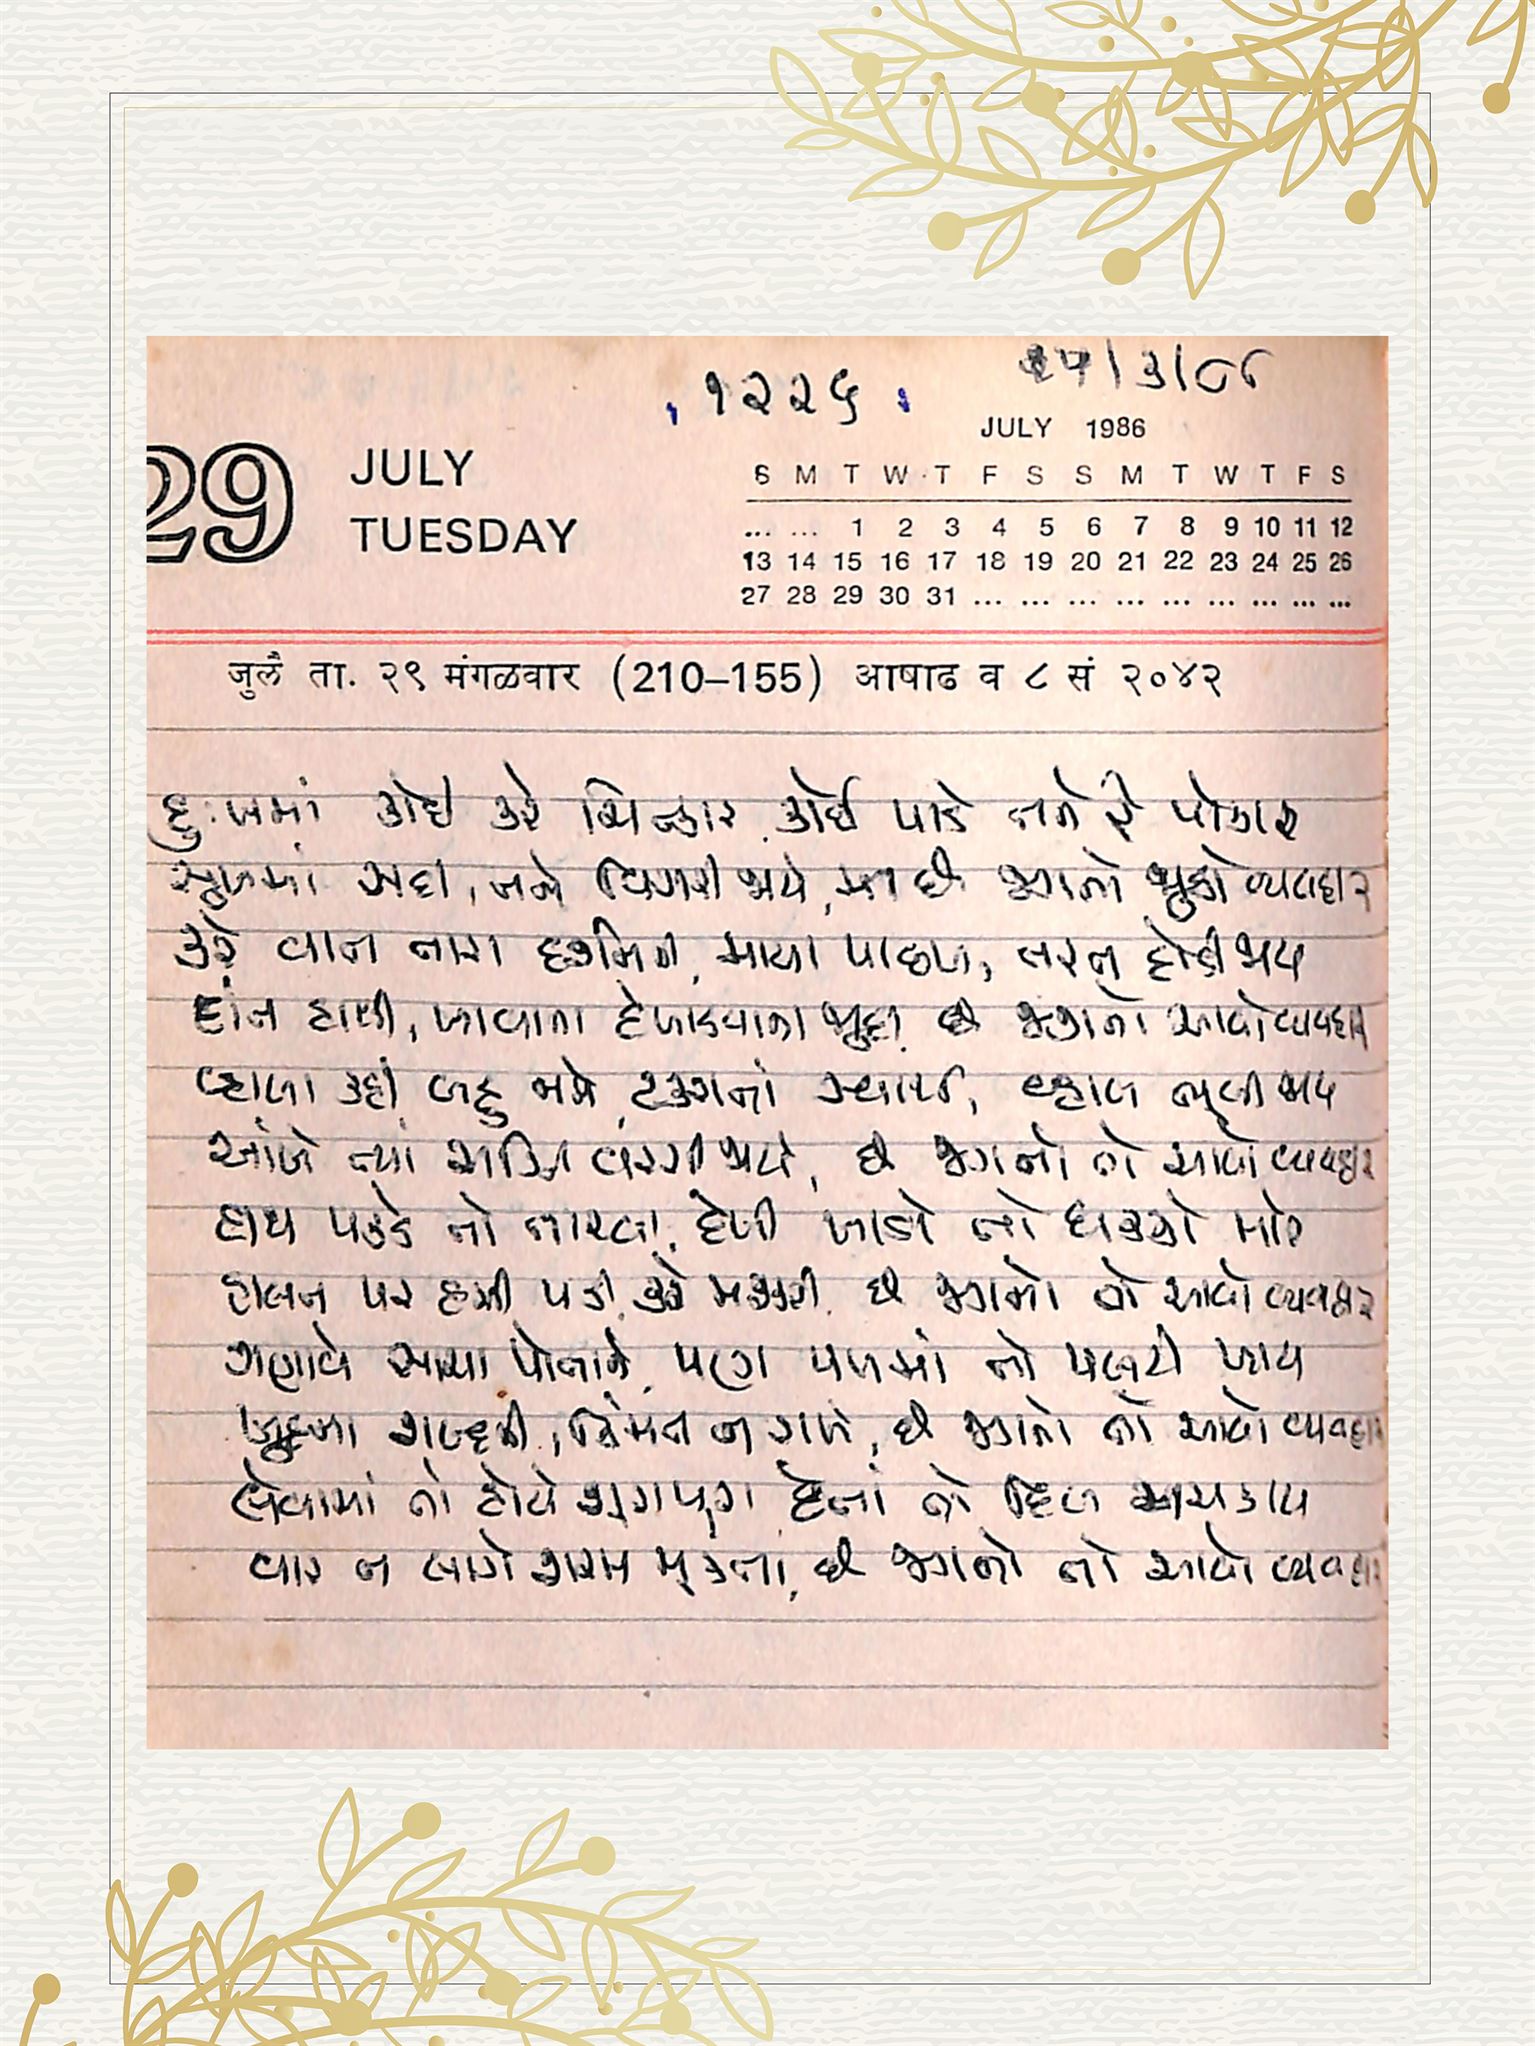 ૧૨૨૬
૨૫/૩/૮૮
JULY 1986
29 JULY
TUESDAY
S M T W T F S S M T W T F S
... ... 1 2 3 4 5 6 7 8 9 10 11 12
13 14 15 16 17 18 19 20 21 22 23 24 25 26
27 28 29 30 31 ... ... ... ... ... ... ... ... ...
जुलै ता. २९ मंगळवार (210–155) आषाढ व ८ सं २०४२
દુઃખમાં કોઈ કરે ચિત્કાર કોઈ પાડે તને રે પોકાર
સુખમાં સદા, તને વિસરી જાયે, છે જગનો જુઠો વ્યવહાર
કરે વાત તારા માયા પાછળ, તરત દોડી જાય
દાંત હાથી, ખાવાના દેખાડવાના જુદા છે જગનો આવો વ્યવહાર
વ્હાલા કહી બહુ ટકરાતાં સ્વાર્થ, વ્હાલ ભૂલી જાય
આંખે ત્યાં જાયે, છે જગનો તો આવો વ્યવહાર
હાથ પકડે તો તારવા, દેખી ખાડો તો ધકેલે
હાલત પર હસી પડી, કરે મશ્કરી છે જગનો તો આવો વ્યવહાર
ગણાવે સાચા પોતાને, પણ પળમાં તો પલટી ખાય
ખુદના શબ્દની, કિંમત ન રાખે, છે જગનો તો આવો વ્યવહાર
લેવામાં તો હોયે શૂરાપૂરા દેતાં તો દિલ અચકાય
વાર ન લાગે શરમ મૂકતા, છે જગનો તો આવો વ્યવહાર